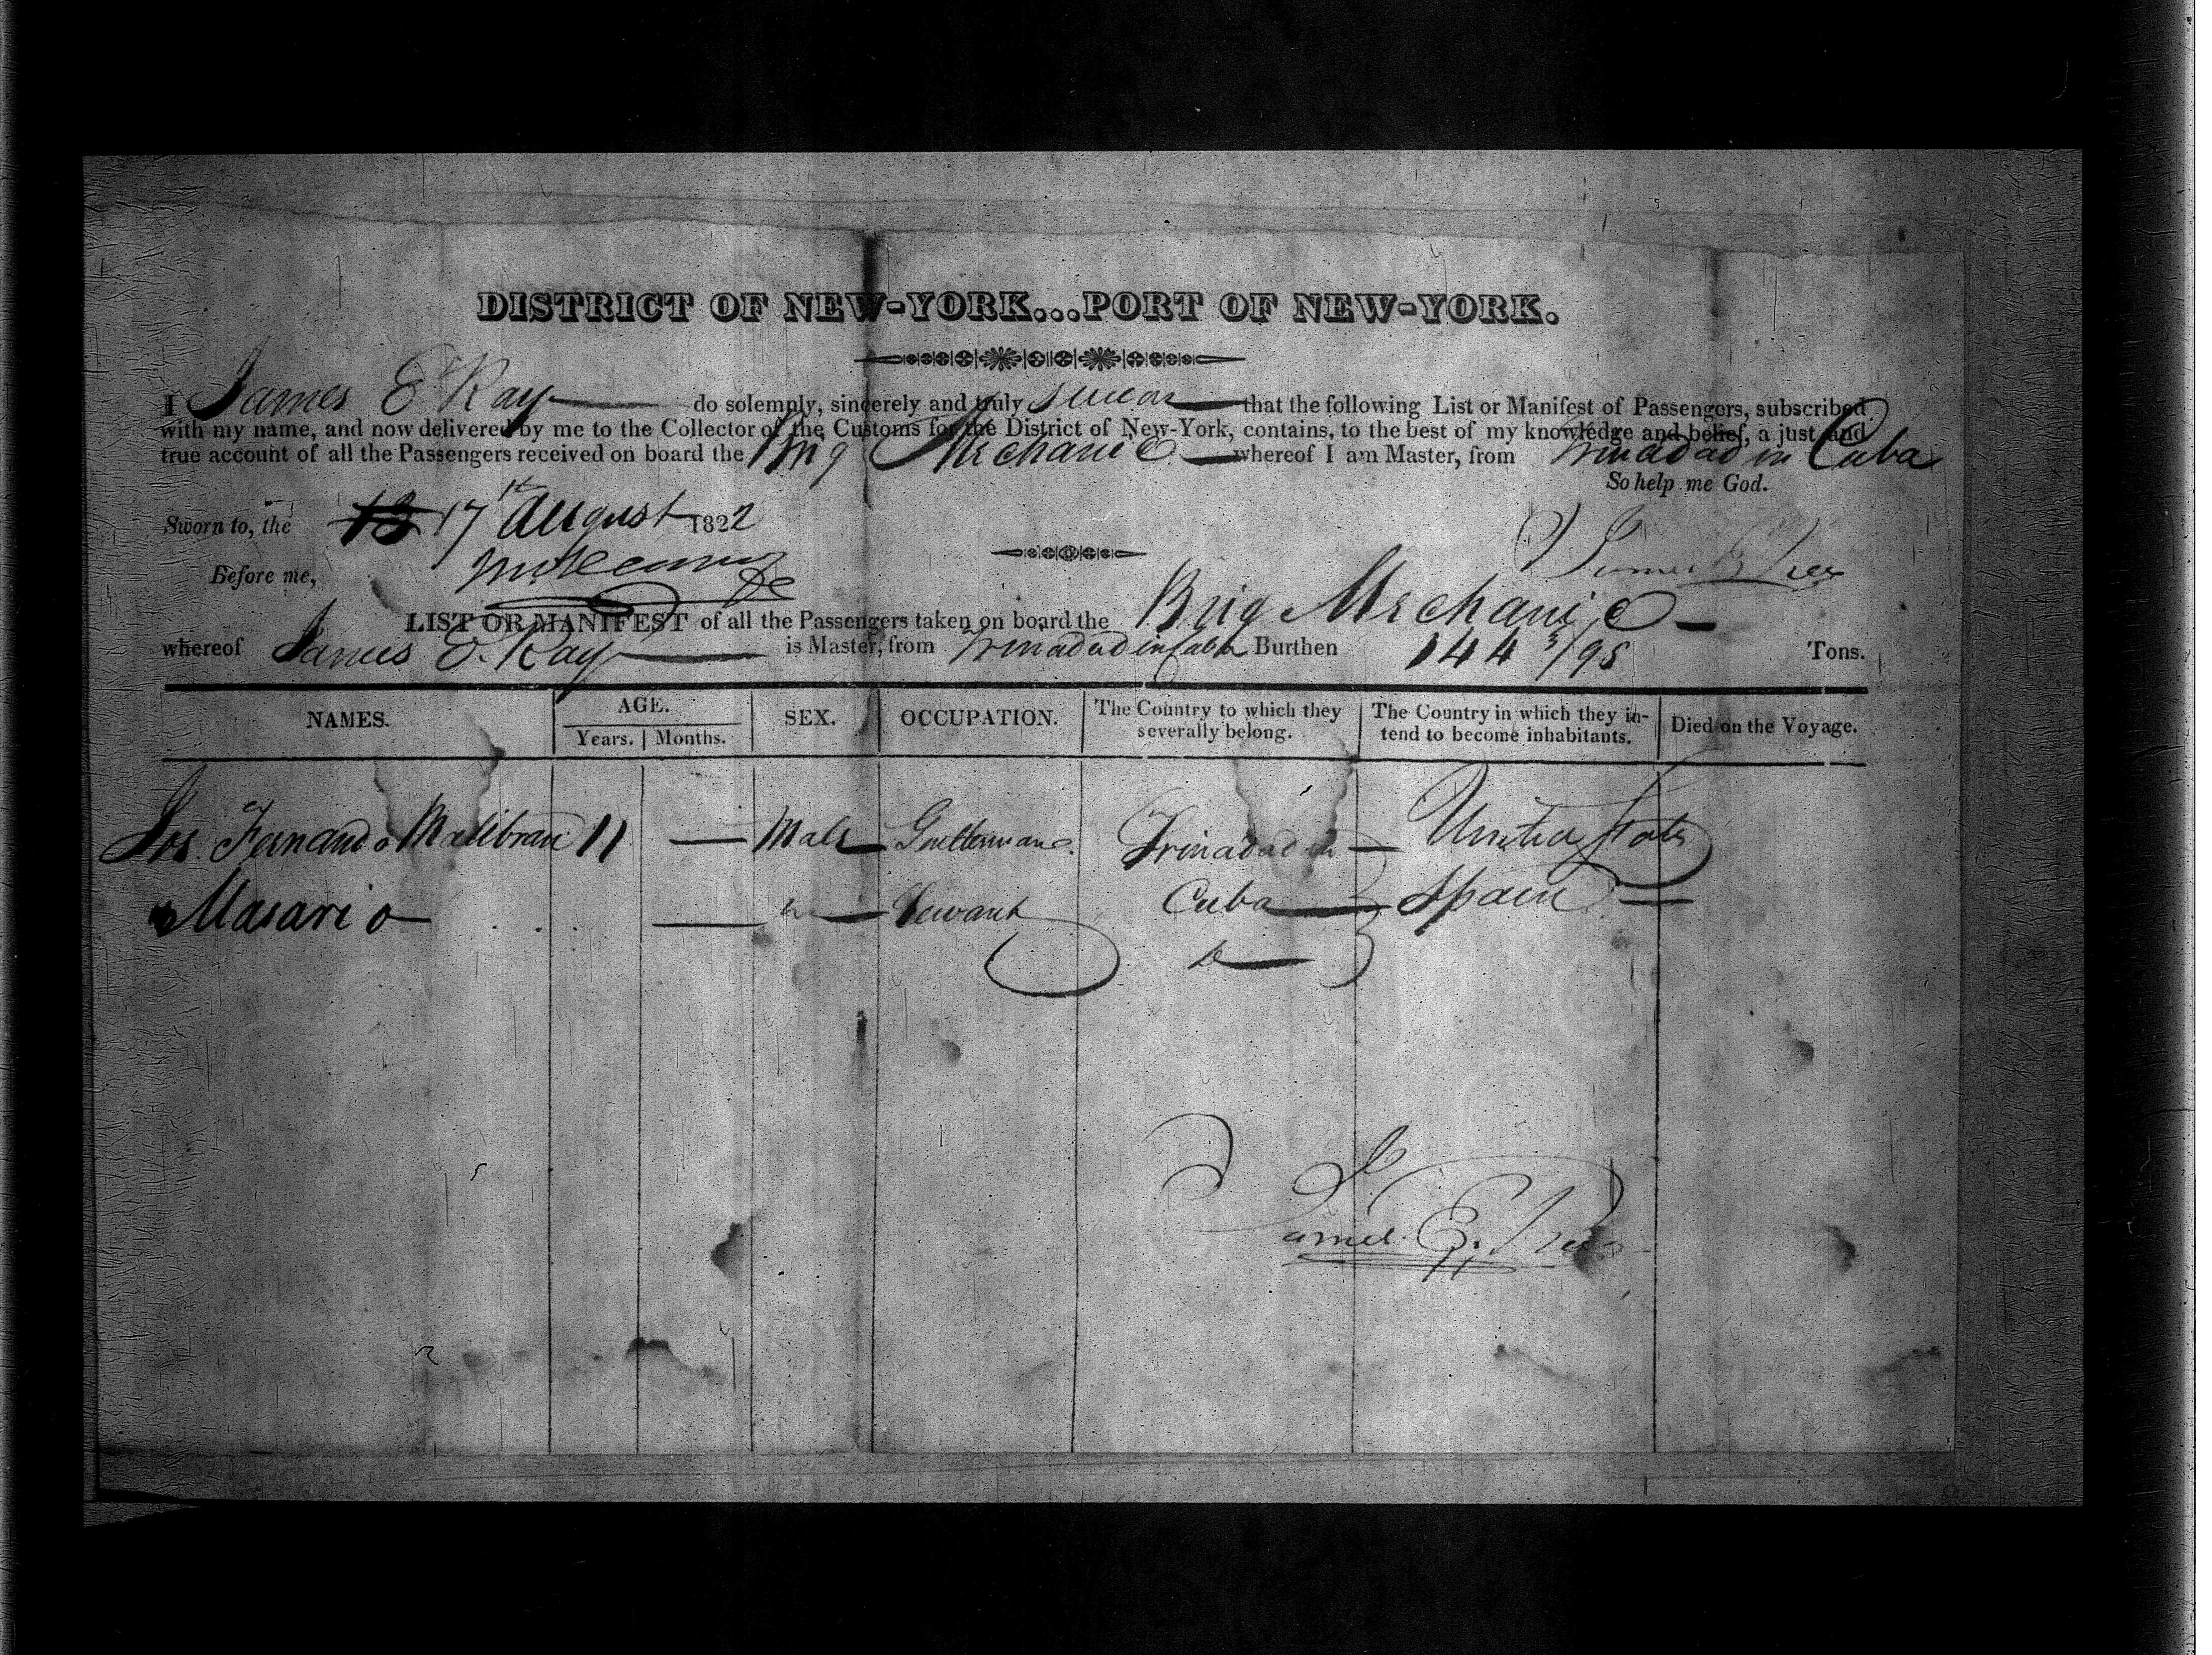 DISTRICT OF NEW-YORK...PORT OF NEW-YORK.
I James E Ray do solemnly, sincerely and truly swear that the following List or Manifest of Passengers, subscribed
with my name, and now delivered by me to the Collector of the Customs for the District of New-York, contains, to the best of my knowledge and belief, a just and
true account of all the Passengers received on board the Brig Mechanic whereof I am Master, from Trinadad in Cuba
So help me God.
Sworn to, the 17 August 1822
James E Ray
Before me,
LIST OR MANIFEST of all the Passengers taken on board the Brig Mechanic
whereof James E. Ray is Master, from Trinadad in Cuba Burthen 144 3/95 Tons.
NAMES. AGE. Years. Months. SEX. OCCUPATION. The Country to which they severally belong. The Country in which they intend to become inhabitants. Died on the Voyage.
Jos. Fernando Malibran 11 — Male Gentleman Trinadad in United States
Masario — Servant Cuba Spain
James E. Ray